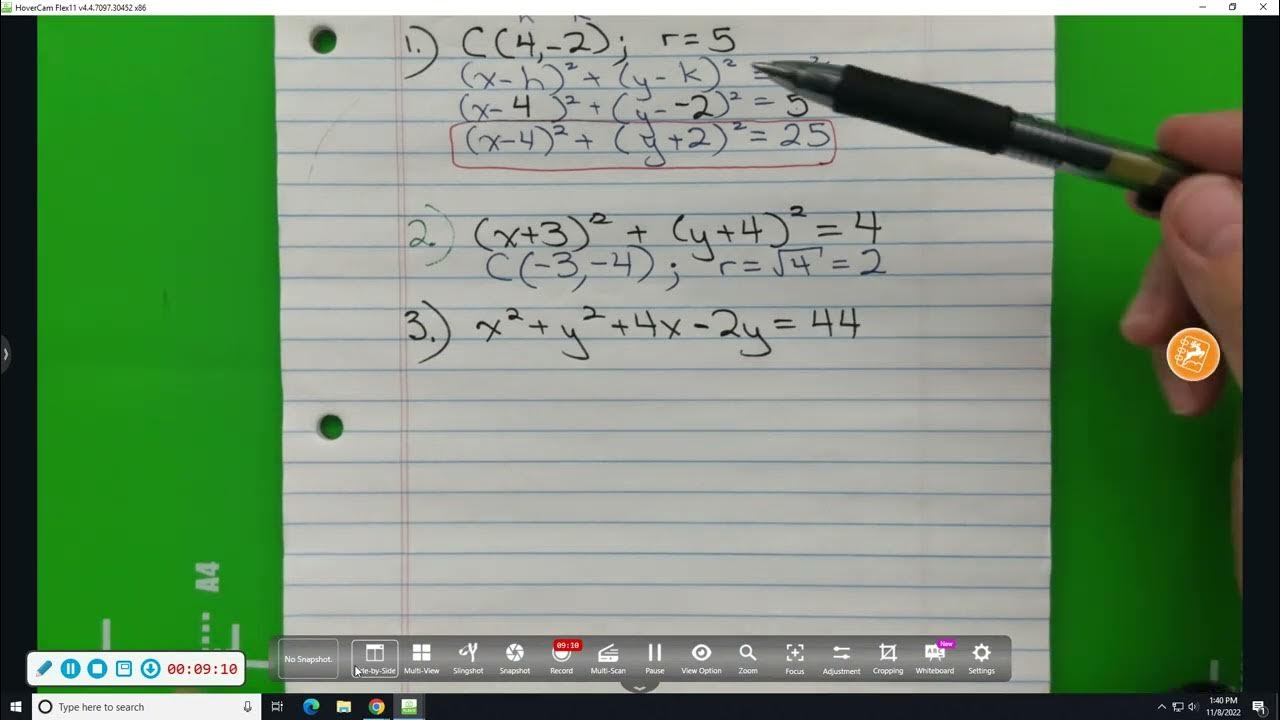 HoverCam Flex11 v4.4.7097.30452 x86
1.) C(4,-2); r=5
(x-h)² + (y-k)² =
(x-4)² + (y--2)² = 5
(x-4)² + (y+2)² = 25
2.) (x+3)² + (y+4)² = 4
C(-3,-4); r=√4 = 2
3.) x² + y² + 4x - 2y = 44
A4
00:09:10
No Snapshot.
Multi-View
Slingshot
Snapshot
09:10
Record
Multi-Scan
Pause
View Option
Zoom
Focus
Adjustment
Cropping
New
Whiteboard
Settings
Type here to search
1:40 PM
11/8/2022